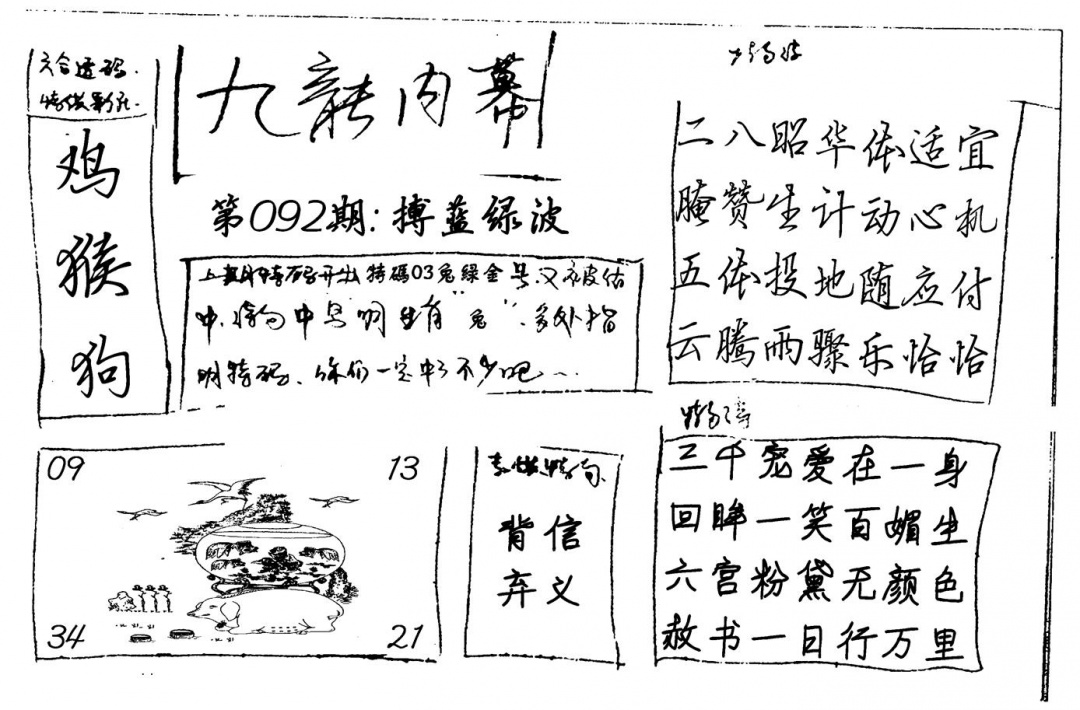 六合透码
鸡
猴
狗
九龍内幕
第092期:搏蓝绿波
上期特码开出特碼03兔绿金号,又被估
中,中号明生肖"兔",多处指
明特码、你们一定中了不少吧...
二八昭华体适宜
腌赞生计动心机
五体投地随应付
云腾雨骤乐恰恰
三千宠爱在一身
回眸一笑百媚生
六宫粉黛无颜色
赦书一日行万里
09
13
34
21
背信
弃义